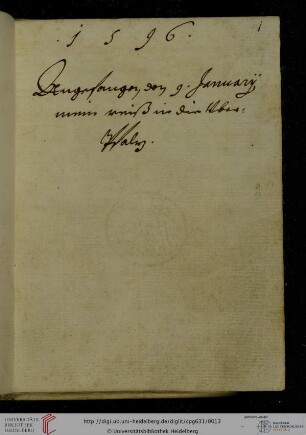 1
. 1 5 9 6 .
Angefangen den 9. January
mein reiß in die Ober-
Pfalz.
UNIVERSITÄTS-
BIBLIOTHEK
HEIDELBERG
http://digi.ub.uni-heidelberg.de/diglit/cpg631/0013
© Universitätsbibliothek Heidelberg